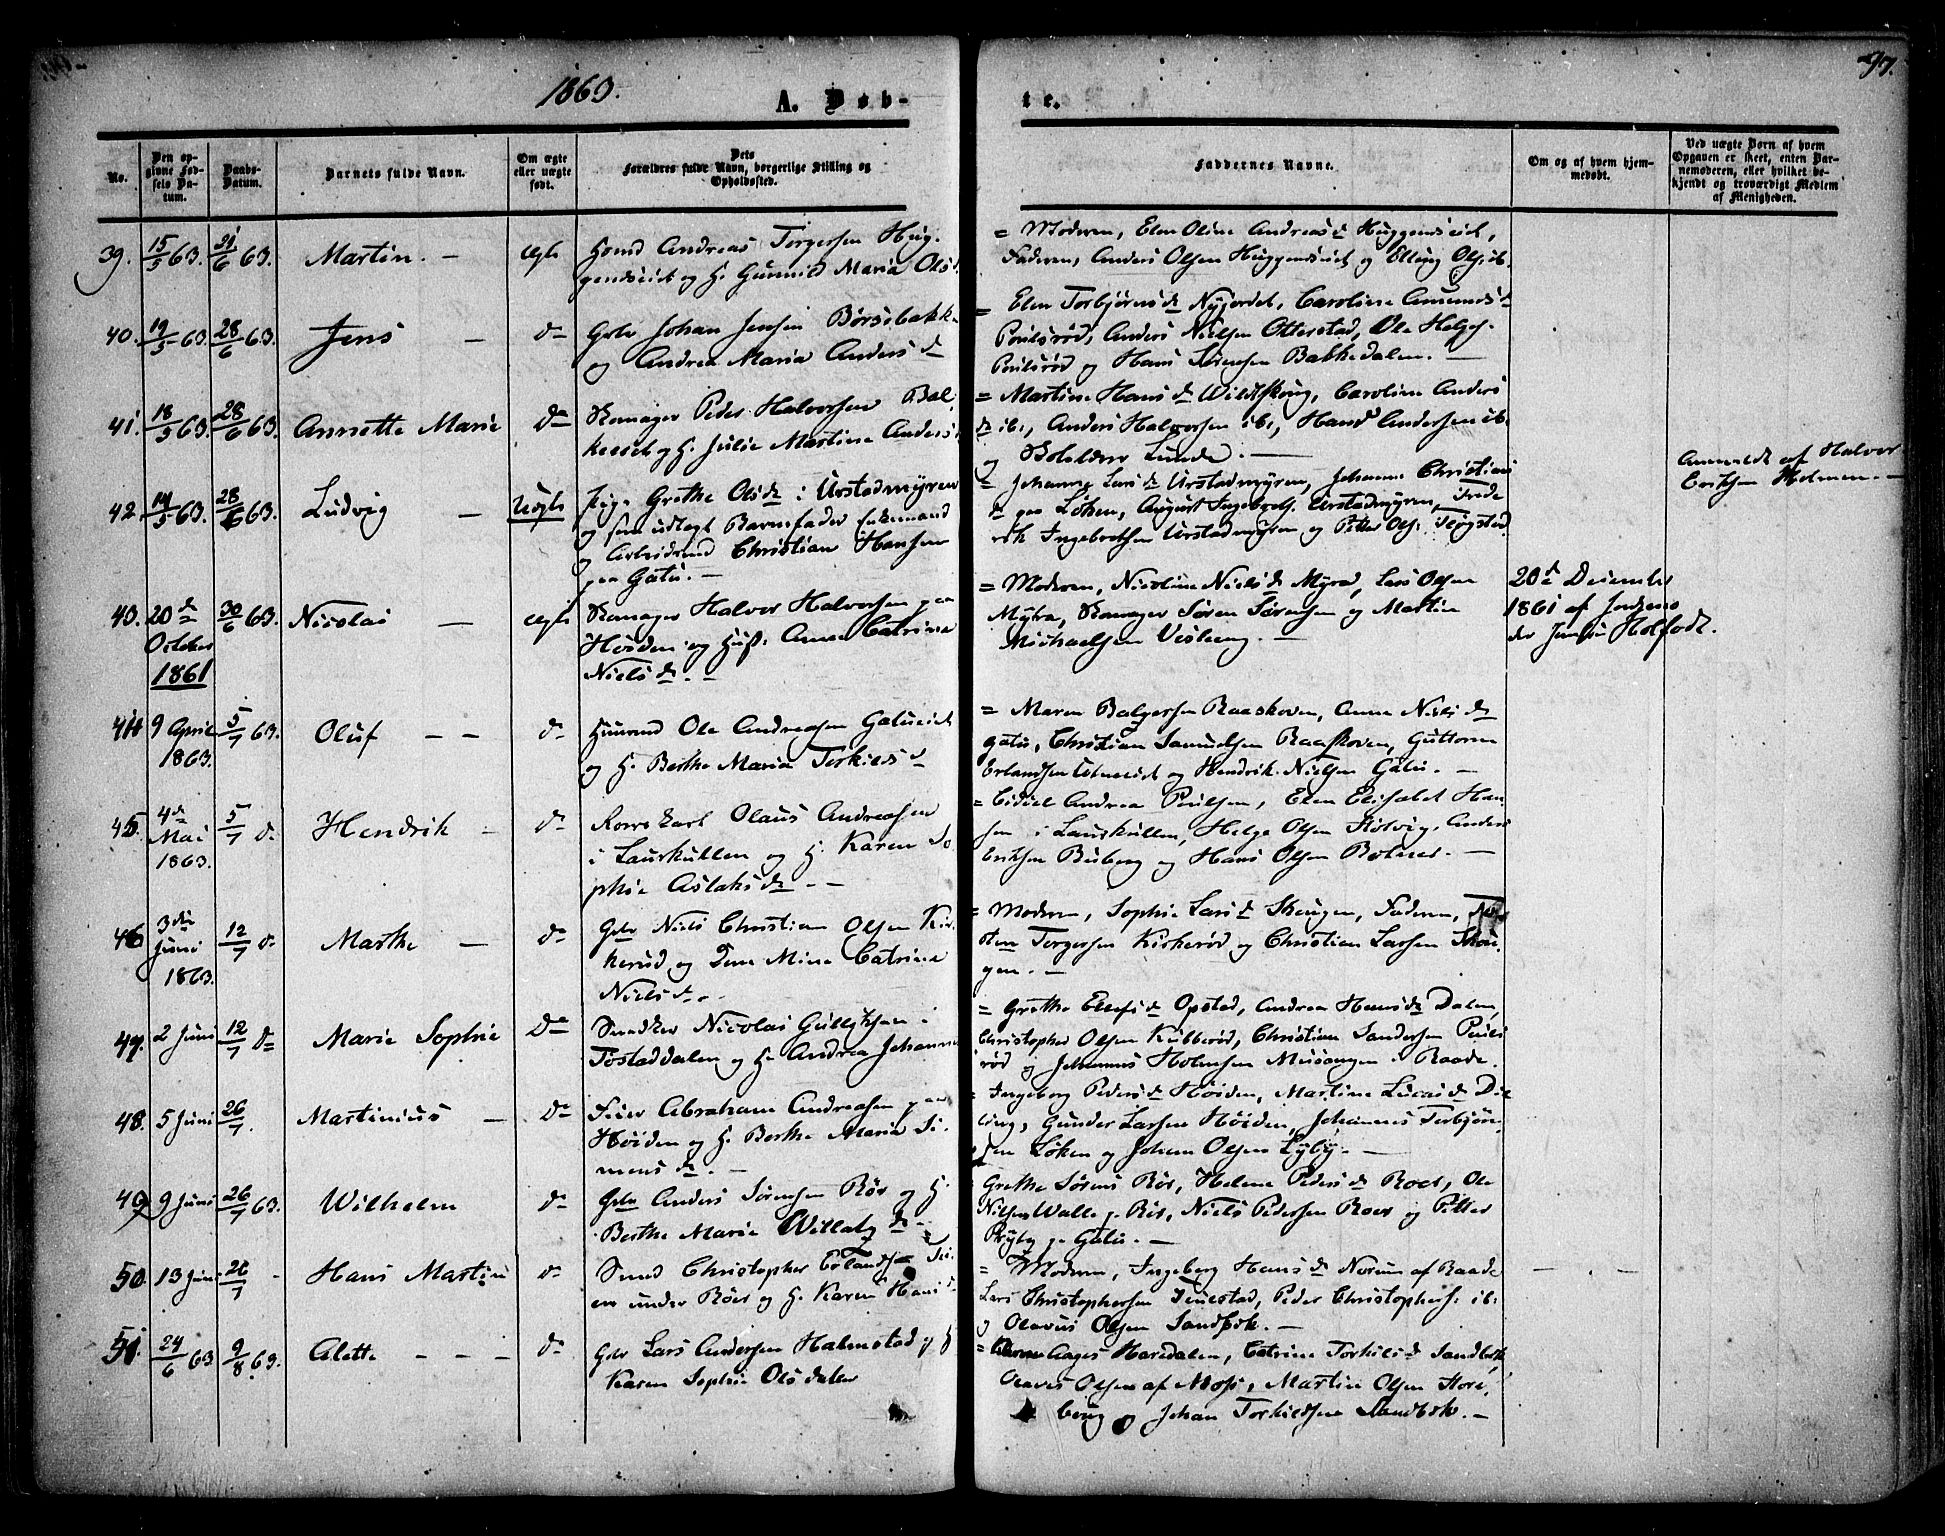 1863.
97.
A. Døb-
te.
No.
Den op-
givne Fød-
sels Da-
tum.
Daabs-
Datum.
Barnets fulde Navn.
Om ægte
eller uægte
født.
Dets
Forældres fulde Navn, borgerlige Stilling og
Opholdssted.
Faddernes Navne.
Om og af hvem hjem-
medøbt.
Ved uægte Børn af hvem
Opgaven er skeet, enten Bar-
nemoderen, eller hvilket be-
kjendt og troværdigt Medlem
af Menigheden.
39. 15/5 63. 21/6 63. Martin. — ægte
Andreas Torgersen Hug-
gendseiet og H. Gunnild Maria Olsd.
= Moderen, Elen Oline Andreasd Huggendseiet,
Faderen, Anders Olsen Huggendseiet og Elling Ols. ib.
40. 19/5 63. 28/6 63. Jens — do
Gbr Johan Jensen Børsebakke
og Andrea Maria Andersd
= Elen Torbjørnsd Nyjordet, Caroline Amundsd
Poulsrød, Anders Nielsen Otterstad, Ole Helges.
Poulsrød og Hans Sørensen Bakkedalen. —
41. 18/5 63. 28/6 63. Annette Marie do
Peder Halvorsen Bak-
keeset og H. Julie Martine Anders
= Martine Hansd Wildtskoug, Caroline Anders
d ib:, Anders Halvorsen ib:, Hans Andersen ib.
og Lunde. —
42. 14/5 63. 28/6 63. Ludvig — Uægte
Pige Grethe Olsd i Urstadmyren
og som udlagt Barnefader Enkemand
og Arbeidsmd Christian Hansen
paa Gatu. —
= Johanne Larsd Urstadmyren, Johanne Christians
d paa Løken, August Ingebrets. Urstadmyren, Frede
rik Ingebretsen Urstadmyren og Petter Ols. Fløgstad.
Anmeldt af Halvor
Eriksen Holmen. —
43. 20de
October
1861 30/6 63. Nicolai — ægte
Halvor Halvorsen paa
Høiden og Hust: Anne Catrine
Nielsd. —
= Moderen, Nicoline Nielsd Myra, Lars Olsen
Myra, Søren Sørensen og Martin
Michaelsen Visberg. —
20de December
1861 af Jordemo
der Jensine Holfodt.
44 9 April
1863. 5/7 63. Oluf — — do
Huusmd Ole Andreasen Gatueiet
og H. Berthe Maria Torkildsd
= Maren Balgersen Raaskoven, Anne Nielsd
Gatu, Christian Samuelsen Raaskoven, Guttorm
Erlandsen og Hendrik Nielsen Gatu. —
45. 4de
Mai
1863. 5/7 do Hendrik — do
Olaus Andreasen
i Lauskullen og H. Karen So
phie Aslaksd. —
= Andrea Poulsen, Elen Elisabet Han-
sen i Lauskullen, Helge Olsen Solvig, Anders
Eriksen Buberg og Hans Olsen Bolnes. —
46 3die
Juni
1863. 12/7 do Marthe — do
Gbr Niels Christian Olsen Kir-
kerud og Dene Mine Catrine
Nielsd.
= Moderen, Sophie Larsd Skougen, Faderen, Tor
sten Torgersen Kirkerød og Christian Larsen Skou
gen. —
47. 2 Juni 12/7 do Marie Sophie do
Snedker Nicolai Gulliksen i
Tostaddalen og H. Andrea Johanne
= Grethe Ellefsd Opstad, Andrea Hansd Dalen,
Christopher Olsen Kubberød, Christian Sandersen Pouls
rød og Johannes Holmsen Musangen i Raade.
48. 5 Juni 26/7. Martinius — do
Feier Abraham Andreasen paa
Høiden og H. Berthe Maria Si-
mensd. —
= Ingeborg Pedersd Høiden, Martine Lucasd Dil
ling, Gunder Larsen Høiden, Johannes Torbjørn
sen Løken og Johan Olsen Lyby. —
49 9 Juni 26/7 63. Wilhelm do
Gbr Anders Sørensen Röer og H.
Berthe Marie Willatzd. —
Grethe Sørens Röer, Helene Pedersd Roer, Ole
Nilsen Walle p. Röer, Niels Pedersen Roer og Petter
Ryby p. Gatu. —
50. 13 Juni 26/7 - Hans Martin do
Smed Christopher Erlandsen
under Röer og H. Karen Hansd
= Moderen, Ingeborg Hansd Norum af Raade
Lars Christophersen Tenestad, Peder Christophers: ib:
og Olavus Olsen Sandbæk. —
51. 24/6 63 9/8 63. Alette — — — do
Gbr Lars Andersen Halmstad og H
Karen Sophie Olsdatter
= Aages Haredalen, Catrine Torkilsd Sandbæk,
Olaves Olsen af Moss, Martin Olsen Store
boug og Johan Torkildsen Sandbæk. —